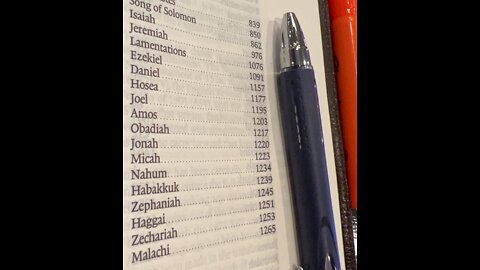 839
Song of Solomon 850
Isaiah 862
Jeremiah 976
Lamentations 1076
Ezekiel 1091
Daniel 1157
Hosea 1177
Joel 1195
Amos 1203
Obadiah 1217
Jonah 1220
Micah 1223
Nahum 1234
Habakkuk 1239
Zephaniah 1245
Haggai 1251
Zechariah 1253
Malachi 1265